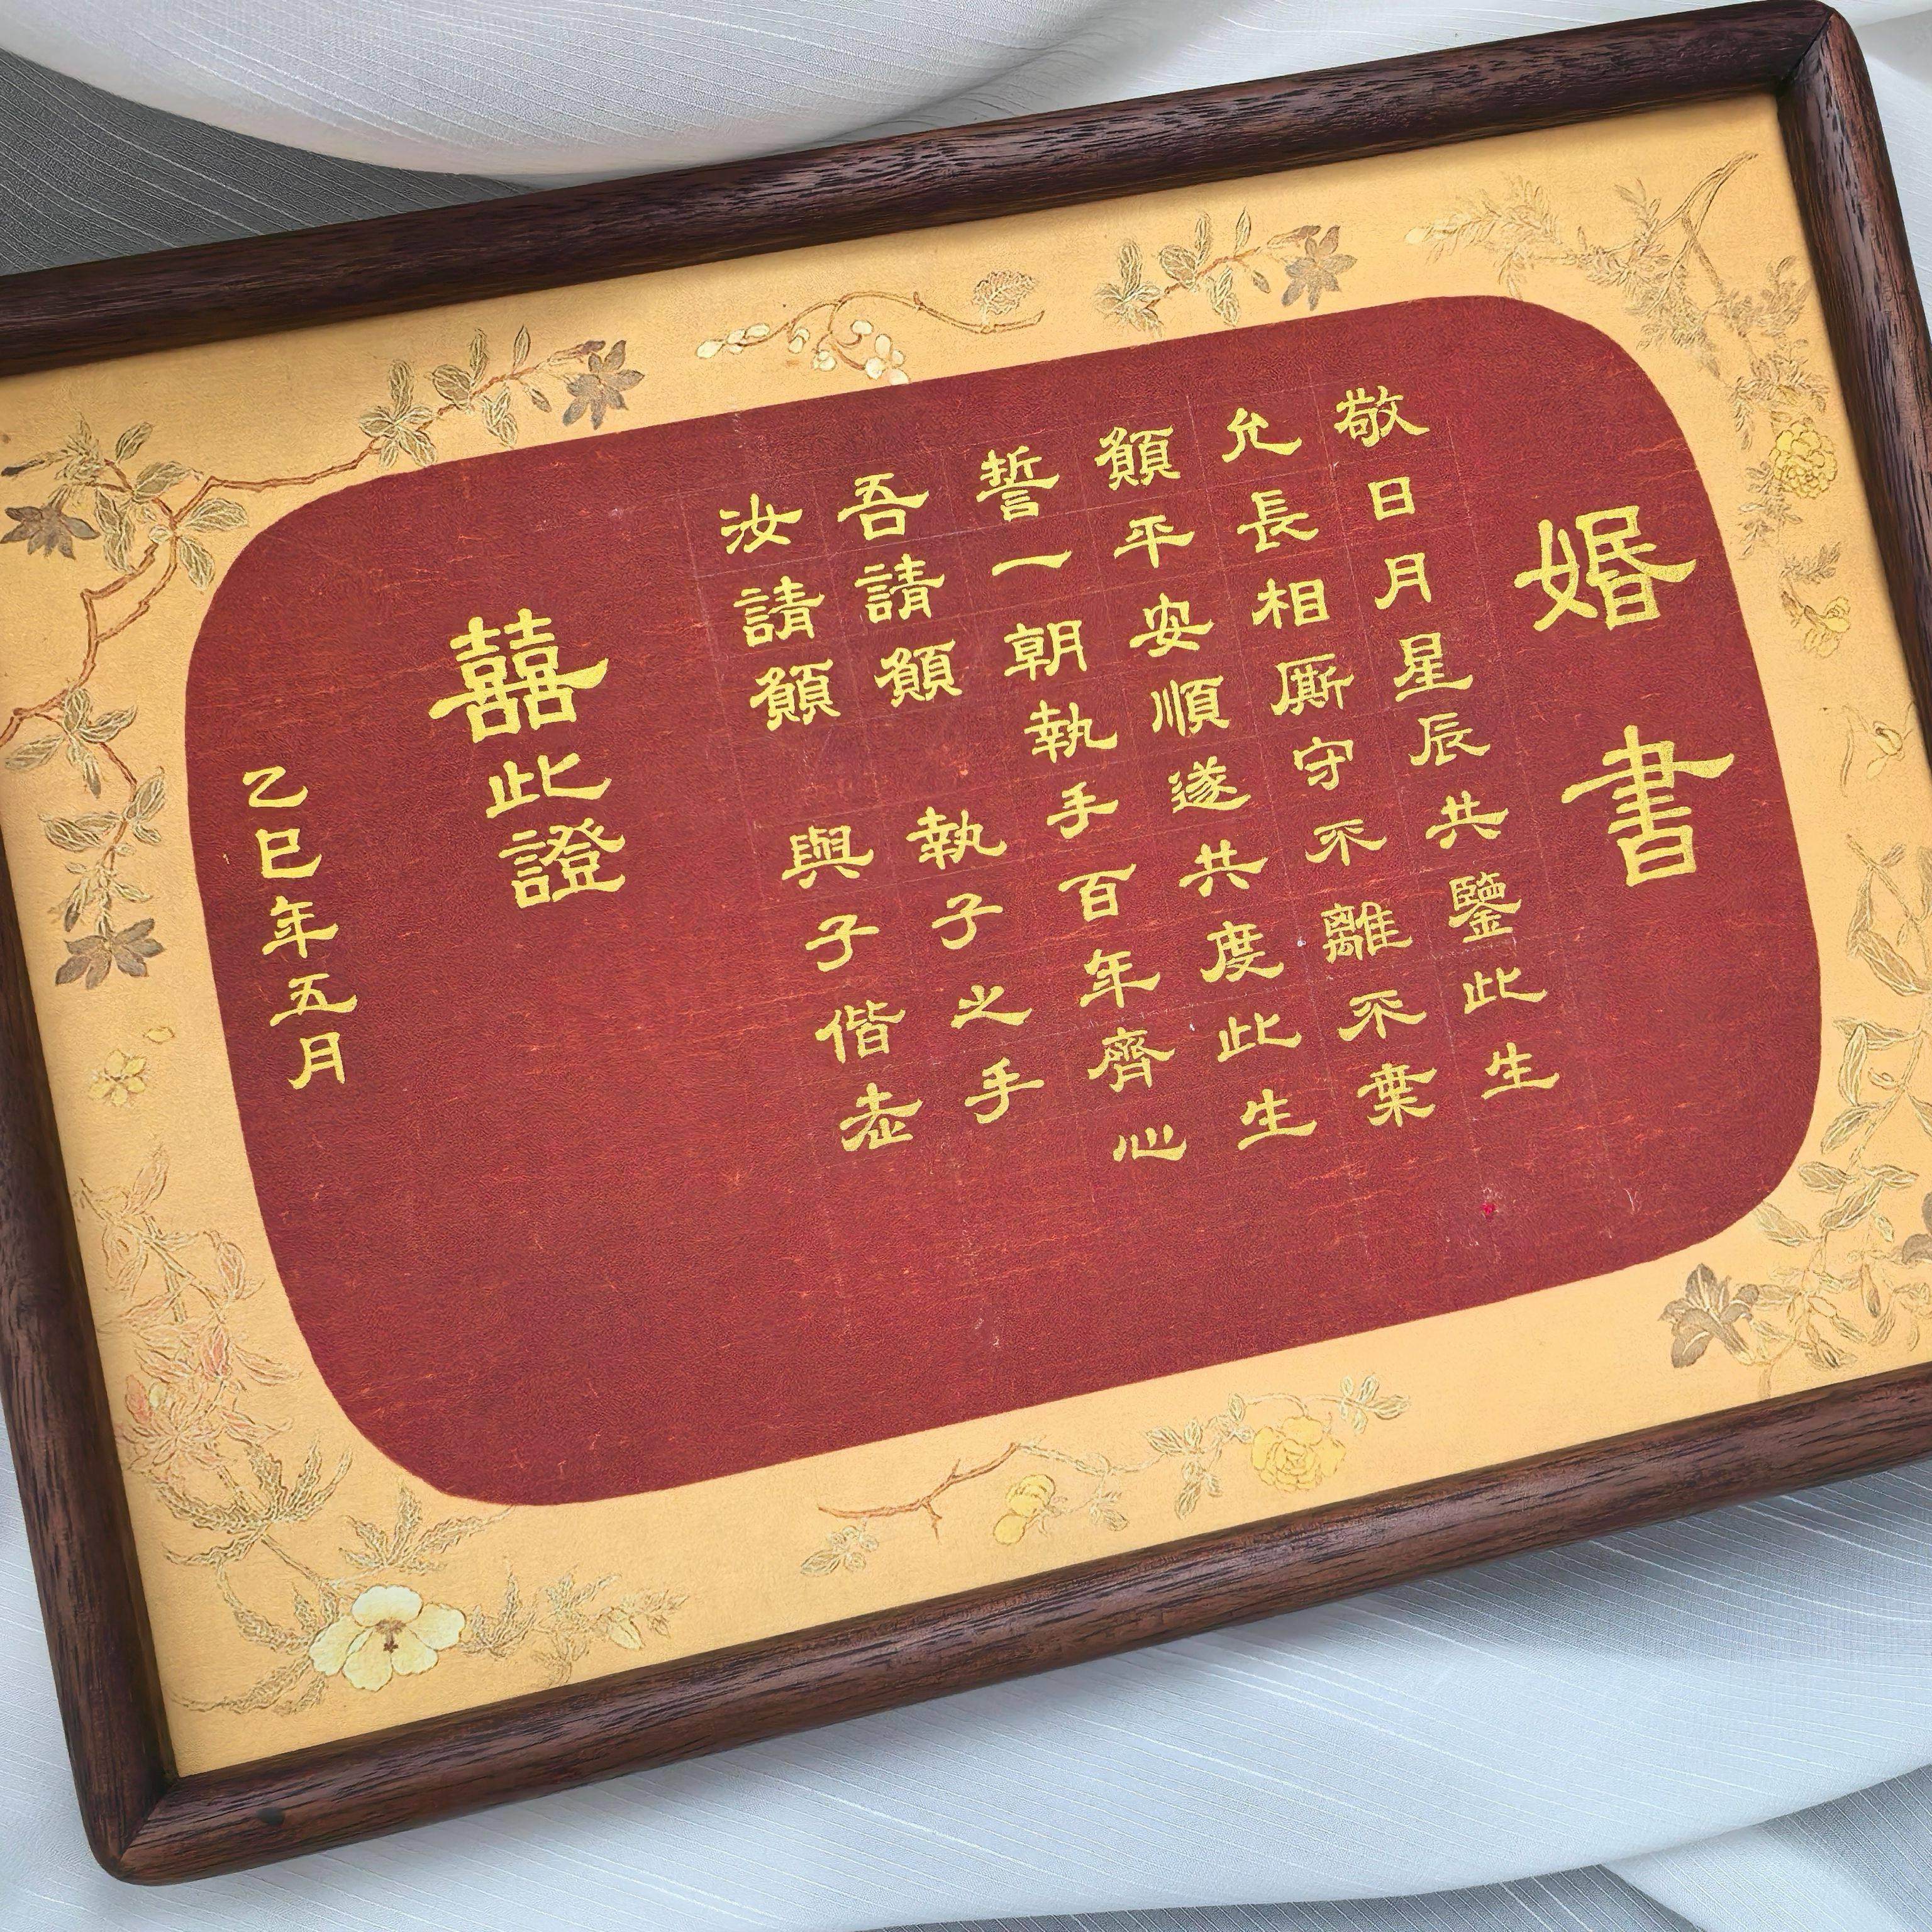 婚書
敬日月星辰共鑒此生
允長相厮守不離不棄
願平安順遂共度此生
誓一朝執手百年齊心
吾請願 執子之手
汝請願 與子偕老
囍此證
乙巳年五月